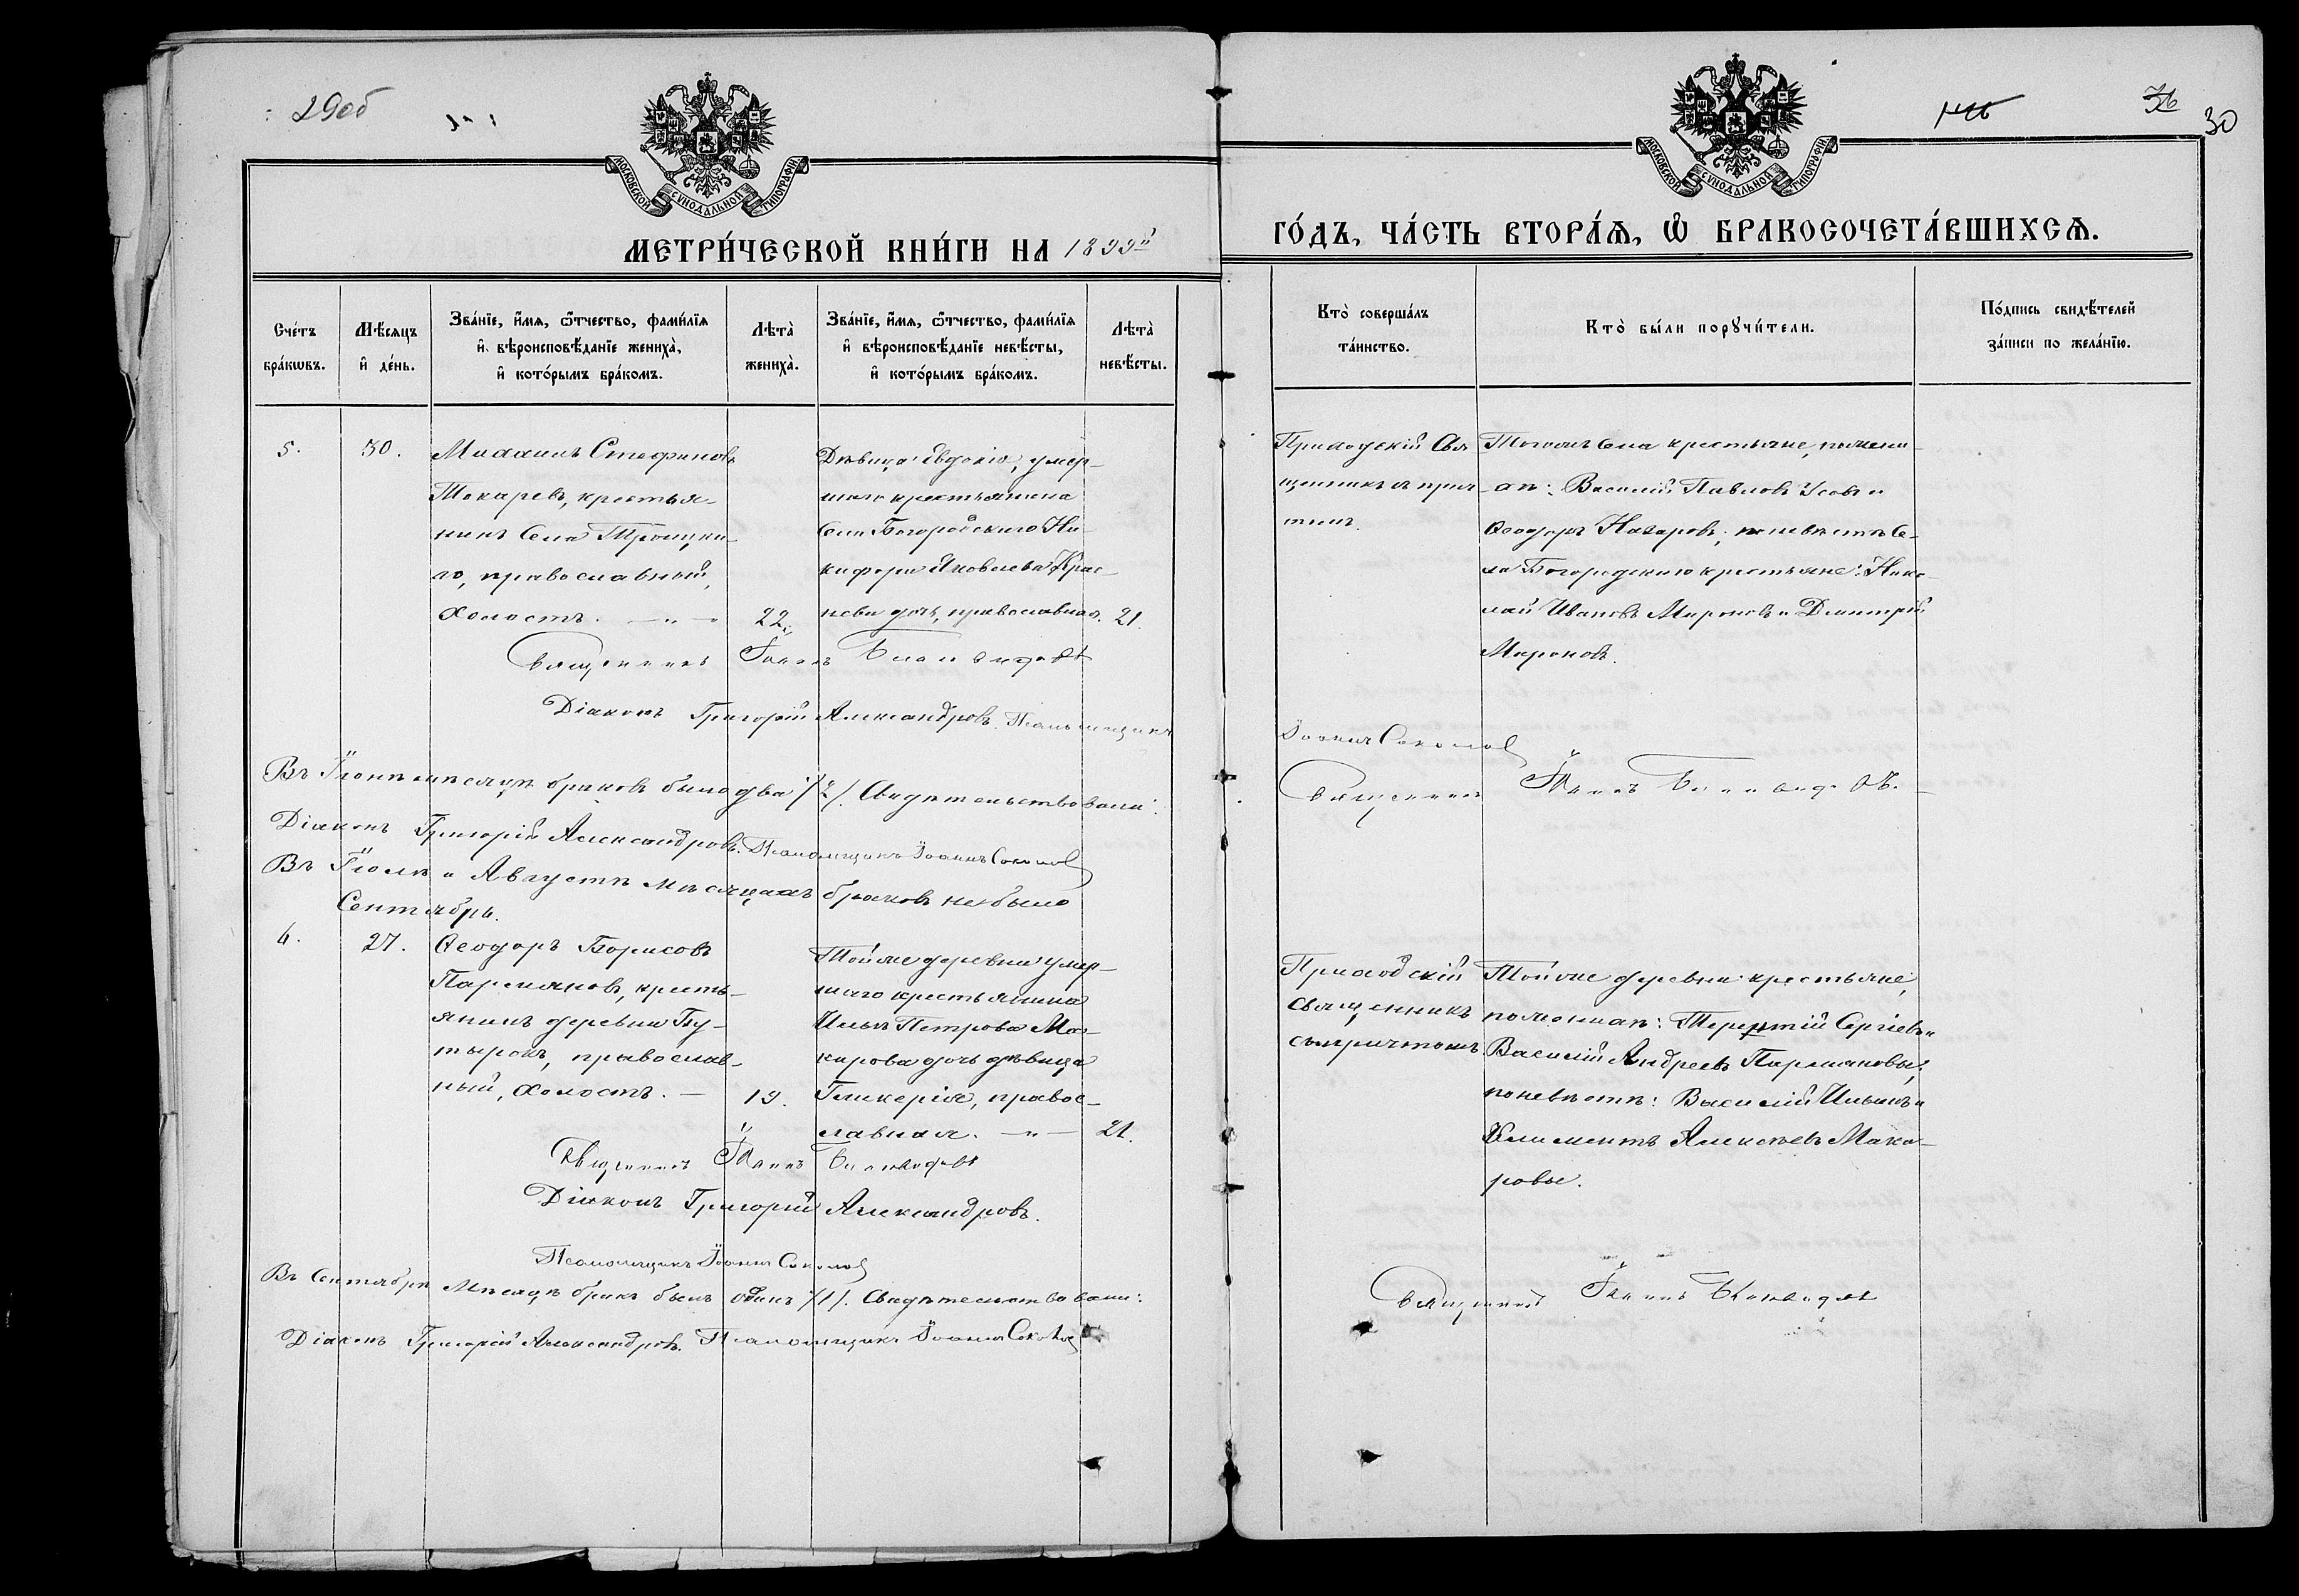 29об
30
МОСКОВСКОЙ СѴНОДАЛЬНОЙ ТИПОГРАФІИ
МОСКОВСКОЙ СѴНОДАЛЬНОЙ ТИПОГРАФІИ
МЕТРИ́ЧЕСКОЙ КНИ́ГИ НА 1899й
ГО́ДЪ, ЧА́СТЬ ВТОРА́Я, Ѽ БРАКОСОЧЕТА́ВШИХСѦ.
Сче́тъ
бра́кѡвъ.
Мѣ́сяцъ
и҆ де́нь.
Зва́нїе, и҆́мѧ, ѻ҆́тчество, фами́лїѧ
и҆ вѣроисповѣ́данїе жениха̀,
и҆ кото́рымъ бра́комъ.
Лѣта̀
жениха̀.
Зва́нїе, и҆́мѧ, ѻ҆́тчество, фами́лїѧ
и҆ вѣроисповѣ́данїе невѣ́сты,
и҆ кото́рымъ бра́комъ.
Лѣта̀
невѣ́сты.
Кто̀ соверша́лъ
та́инство.
Кто̀ бы́ли порꙋчи́тели.
По́дпись свидѣ́телей
за́писи по жела́нїю.
5.
30.
Михаилъ Стефановъ
Токаревъ, крестья-
нинъ Села Троицка-
го, православный,
холостъ.
22.
Дѣвица Евдокія, умер-
шаго крестьянина
Села Богородскаго Ни-
кифора Яковлева
нева дочь, православная.
21.
Приходскій Свя
щенникъ съ прич-
томъ.
Тогоже Села крестьяне, по жени-
хѣ: Василій Павловъ Усовъ и
Ѳеодоръ Назаровъ; по невѣстѣ Се-
ла Богородскаго крестьяне: Нико-
лай Ивановъ Мироновъ и Димитрій
Мироновъ.
Священникъ Іоаннъ
Діаконъ Григорій Александровъ. Псаломщикъ
Іоаннъ Соколов
Въ Іюнѣ мѣсяцѣ браковъ было два /2/. Свидѣтельствовали:
Священникъ Іоаннъ
Діаконъ Григорій Александровъ. Псаломщикъ Іоаннъ Соколов
Въ Іюлѣ и Августѣ мѣсяцахъ браковъ не было
Сентябрь.
6.
27.
Ѳеодоръ Борисовъ
Пармановъ, кресть-
янинъ деревни Бу-
тырокъ, православ-
ный, холостъ.
19.
Той же деревни умер-
шаго крестьянина
Ильи Петрова Ма-
карова дочь дѣвица
Гликерія, правос-
лавная.
21.
Приходскій
священникъ
съ причтомъ
Той же деревни крестьяне,
по женихѣ: Терентій Сергіевъ и
Василій Андреевъ Пармановы;
по невѣстѣ: Василій Ильинъ и
Климентъ Алексѣевъ Мака-
ровы.
Священникъ Іоаннъ
Діаконъ Григорій Александровъ.
Псаломщикъ Іоаннъ Соколов
Въ Сентябрѣ Мѣсяцѣ бракъ былъ одинъ /1/. Свидѣтельствовали:
Священникъ Іоаннъ
Діаконъ Григорій Александровъ. Псаломщикъ Іоаннъ Соколов